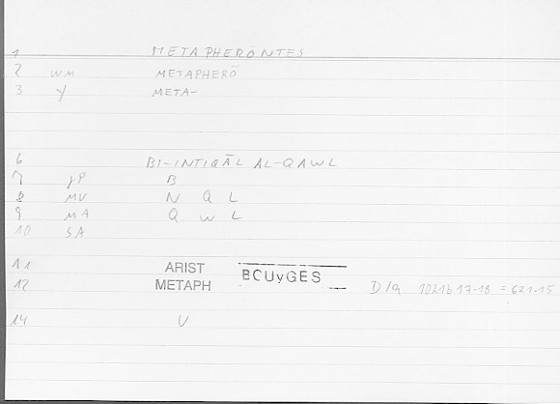 1 METAPHERONTES
2 WM METAPHERŌ
3 Y META-
6 BI-INTIQĀL AL-QAWL
7 JP B
8 MV N Q L
9 MA Q W L
10 SA
11 ARIST BOUyGES
12 METAPH D/a 1021b17-18 = 621.15
14 V